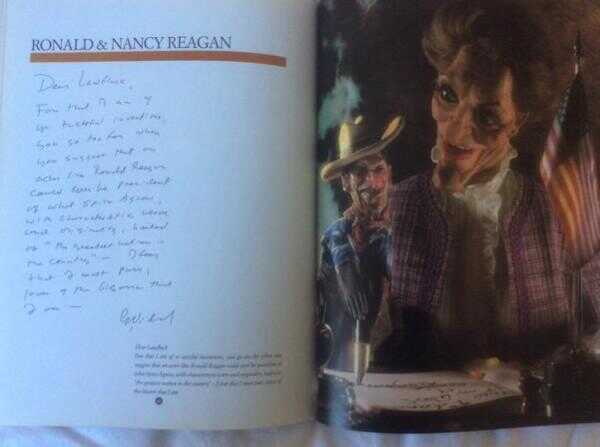 RONALD & NANCY REAGAN
Dear
Fan that I am of
yr tasteful inventions,
you go too far when
you suggest that an
actor like Ronald Reagan
could ever be president
of what Spiro Agnew,
with characteristic verve
and originality, hailed
as "the greatest nation in
the country" — I fear
that I must pass,
lover of the bizarre that
I am —
Dear
Fan that I am of yr tasteful inventions, you go too far when you
suggest that an actor like Ronald Reagan could ever be president of
what Spiro Agnew, with characteristic verve and originality, hailed as
'the greatest nation in the country' - I fear that I must pass, lover of
the bizarre that I am